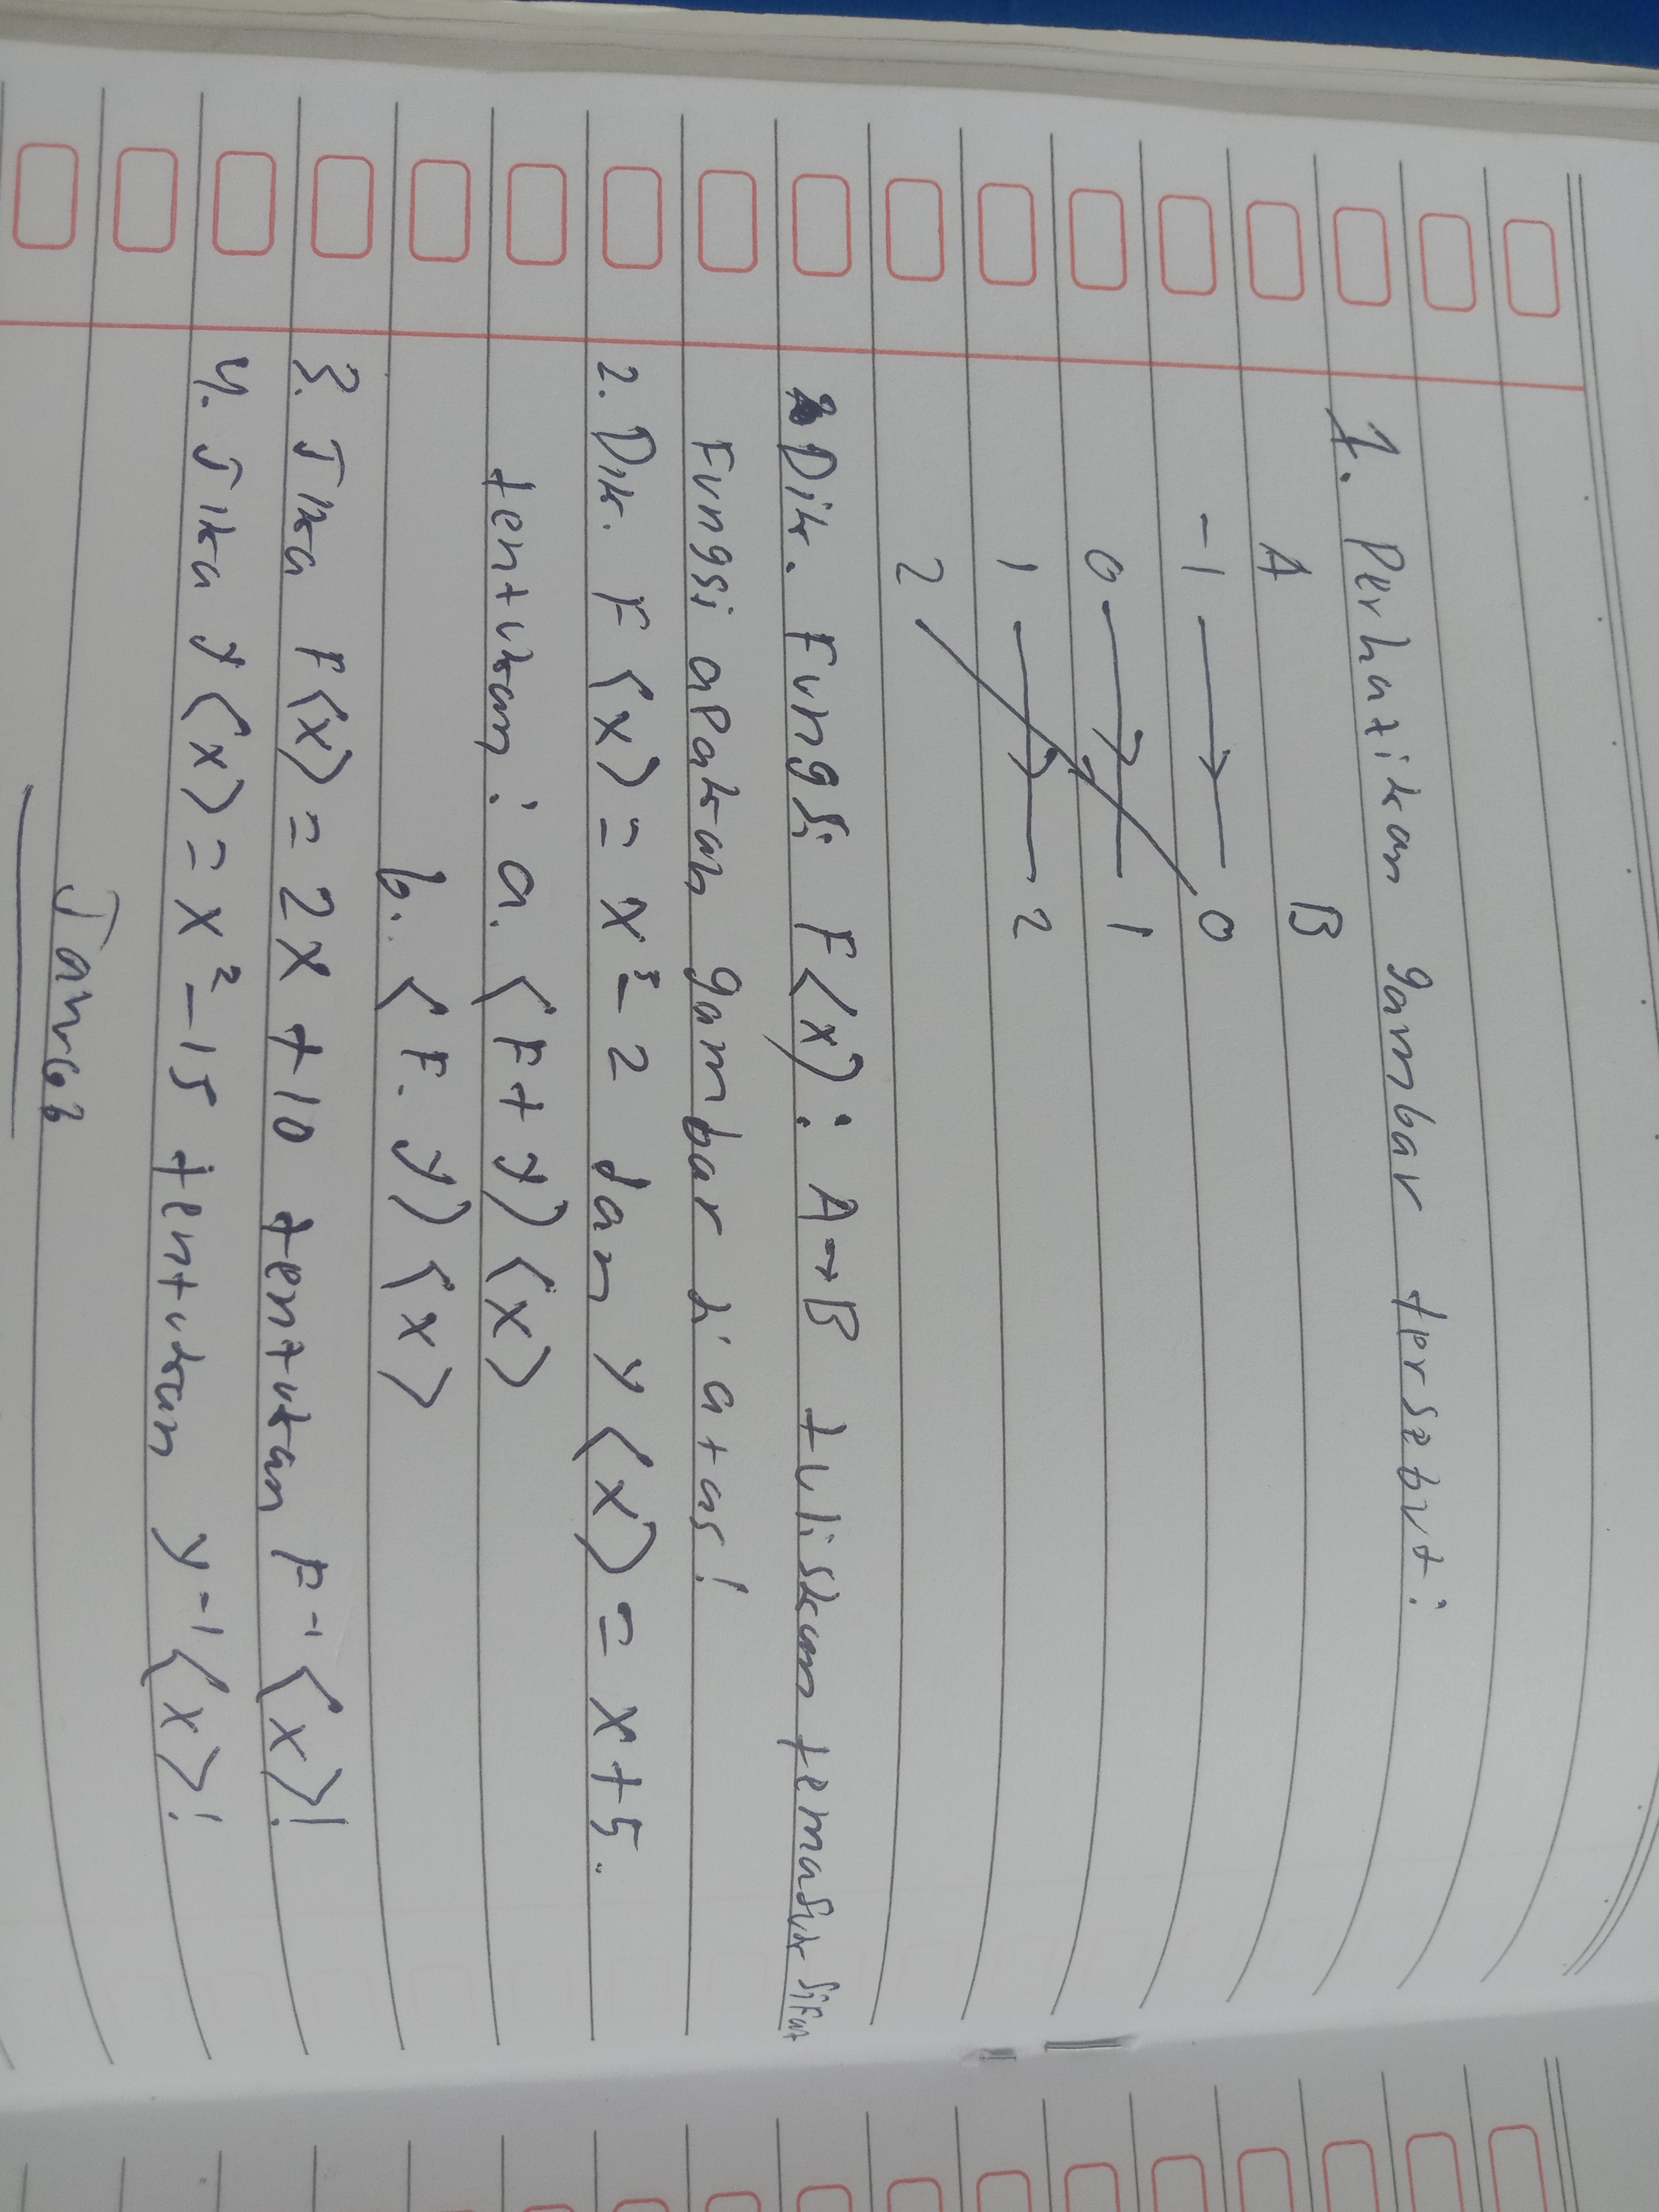 1. Perhatikan gambar tersebut:
A B
-1 0
0 1
1 2
2
Dik. Fungsi F(x): A→B tuliskan termasuk sifat
Fungsi apakah gambar di atas!
2. Dik. F(x) = x³ - 2 dan y(x) = x + 5.
tentukan: a. (F + y)(x)
b. (F. y)(x)
3. Jika F(x) = 2x + 10 tentukan F⁻¹(x)!
4. Jika y(x) = x² - 15 tentukan y⁻¹(x)!